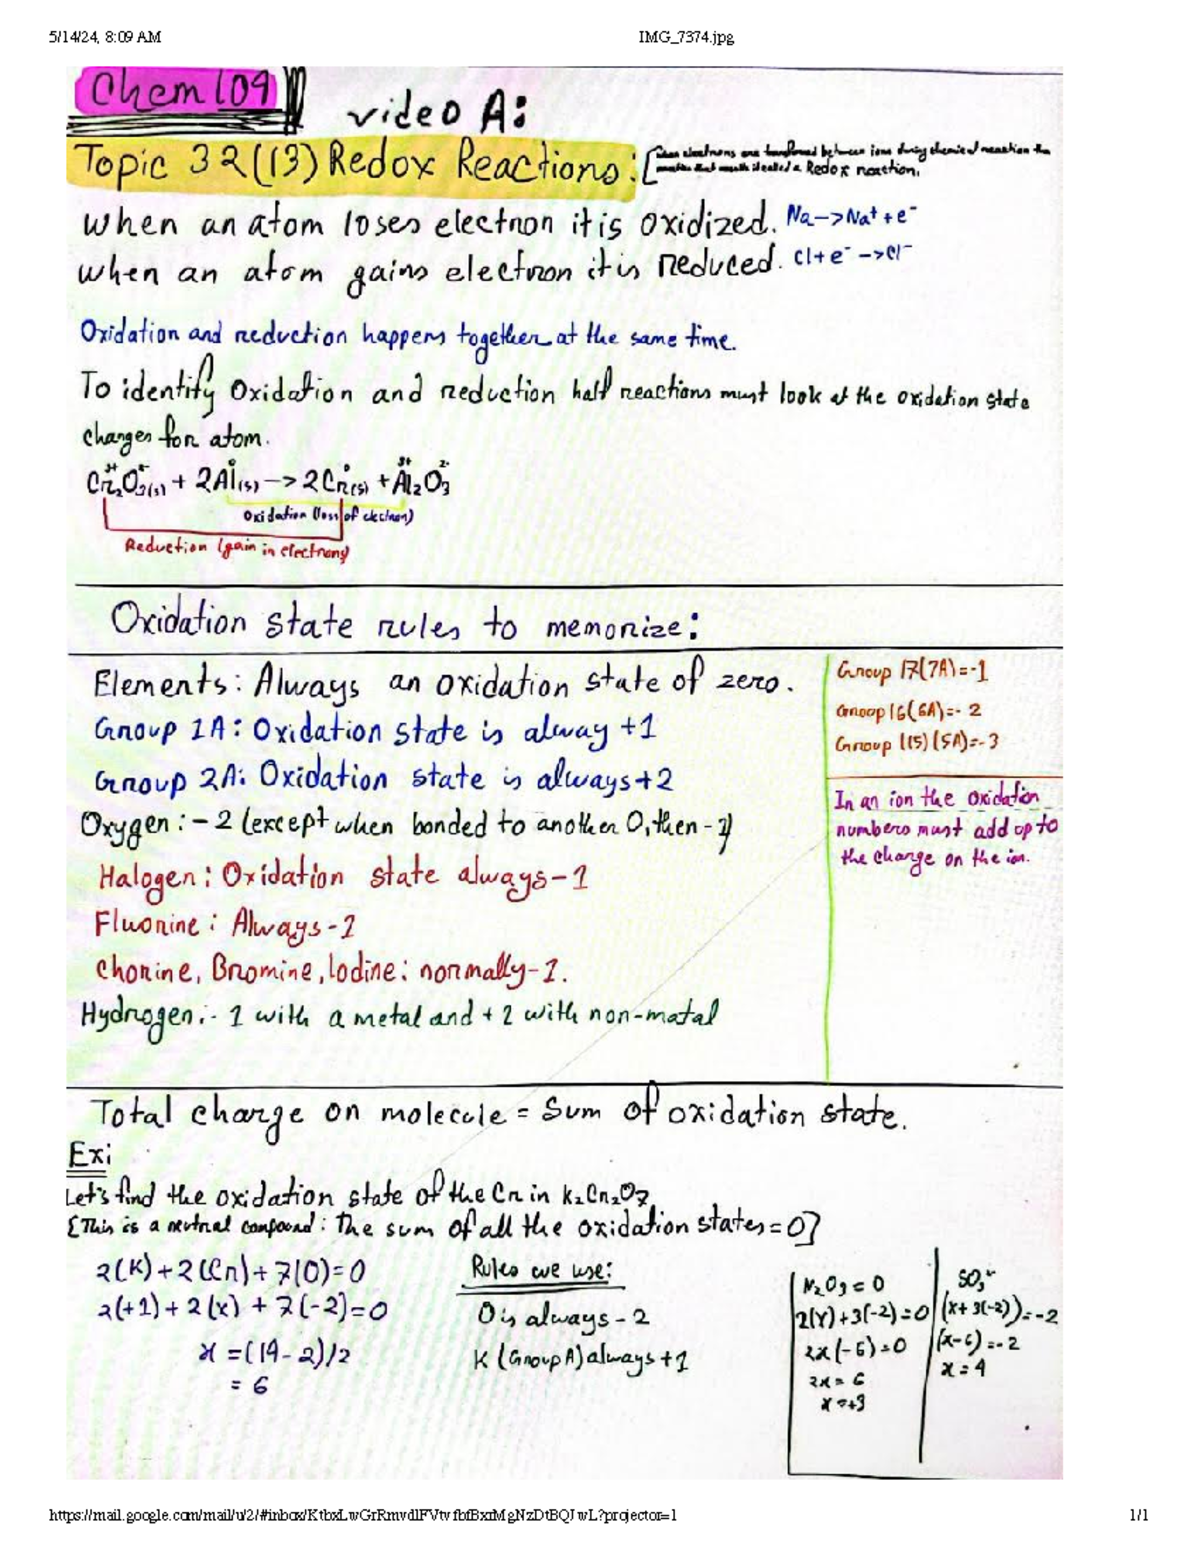 5/14/24, 8:09 AM
IMG_7374.jpg
Chem 109
video A:
Topic 32(13) Redox Reactions: [When electrons are transferred between ions during chemical reaction the
is called a Redox reaction.
When an atom loses electron it is oxidized. Na—>Na⁺+e⁻
when an atom gains electron it is reduced. Cl+e⁻—>Cl⁻
Oxidation and reduction happens together at the same time.
To identify oxidation and reduction half reactions must look at the oxidation state
changes for atom.
3+ 2- 0 0 3+ 2-
Cr₂O₃(s) + 2Al(s)—>2Cr(s) + Al₂O₃
Oxidation (loss of electron)
Reduction (gain in electrons)
Oxidation state rules to memorize:
Elements: Always an oxidation state of zero.
Group 1A: Oxidation state is alway +1
Group 2A: Oxidation state is always+2
Oxygen:-2 (except when bonded to another O, then -1)
Halogen: Oxidation state always-1
Fluorine: Always-1
Chorine, Bromine, Iodine: normally-1.
Hydrogen:-1 with a metal and +1 with non-matal
Group 17(7A)=-1
Group 16(6A)=-2
Group (15)(5A)=-3
In an ion the oxidation
numbers must add up to
the charge on the ion.
Total charge on molecule = Sum of oxidation state.
Ex:
Let's find the oxidation state of the Cr in K₂Cr₂O₇
{This is a neutral compound: The sum of all the oxidation states=0}
2(K)+2(Cr)+7(O)=0
2(+1)+2(x)+7(-2)=0
x=(14-2)/2
=6
Rules we use:
O is always-2
K (Group A) always+1
N₂O₃=0
2(x)+3(-2)=0
2x(-6)=0
2x=6
x=+3
SO₃²⁻
(x+3(-2))=-2
(x-6)=-2
x=4
https://mail.google.com/mail/u/2/#inbox/KtbxLwGrRmvdlFVtvfbfBxrMgNzDtBQJwL?projector=1
1/1